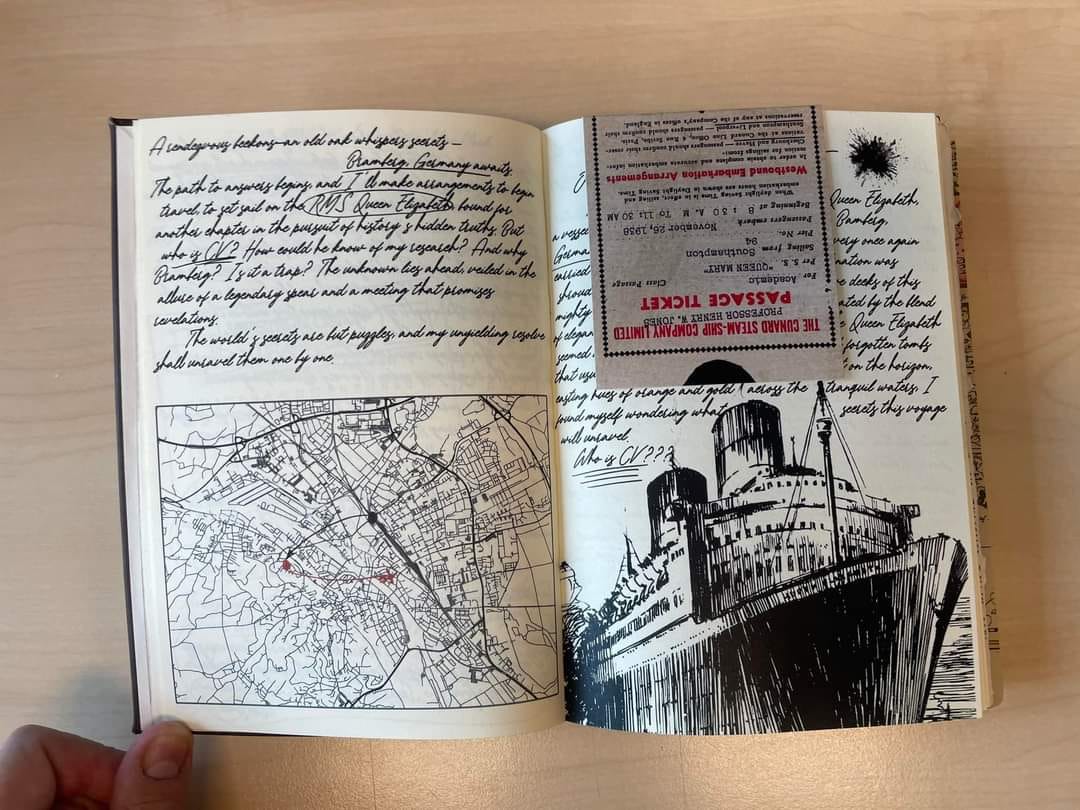 A rendezvous beckons—an old oak whispers secrets—
Bramberg, Germany awaits.
The path to answers begins, and I'll make arrangements to begin
travel, to set sail on the RMS Queen Elizabeth bound for
another chapter in the pursuit of history's hidden truths. But
who is CV? How could he know of my research? And why
Bramberg? Is it a trap? The unknown lies ahead, veiled in the
allure of a legendary spear and a meeting that promises
revelations.
The world's secrets are but puzzles, and my unyielding resolve
shall unravel them one by one.
THE CUNARD STEAM-SHIP COMPANY LIMITED
PROFESSOR HENRY W. JONES
PASSAGE TICKET
For Academic Class Passage
Per S.S. "QUEEN MARY"
Sailing from Southampton
Pier No. 94
Passengers embark November 26, 1938
Beginning at 8:30 A.M. To 11:30 AM
When Daylight Saving Time is in effect, sailing and
embarkation hours are shown in Daylight Saving Time.
Westbound Embarkation Arrangements
In order to obtain complete and accurate embarkation infor-
mation for sailings from:
Cherbourg and Havre — passengers should confirm their reser-
vations at the Cunard Line Office, 6 Rue Scribe, Paris.
Southampton and Liverpool — passengers should confirm their
reservations at any of the Company's offices in England.
Queen Elizabeth,
a Bamberg,
once again
carried was
decks of this
mighty by the blend
of Queen Elizabeth
seemed forgotten tombs
that on the horizon,
casting hues of orange and gold across the tranquil waters, I
found myself wondering what secrets this voyage
will unravel.
Who is CV???